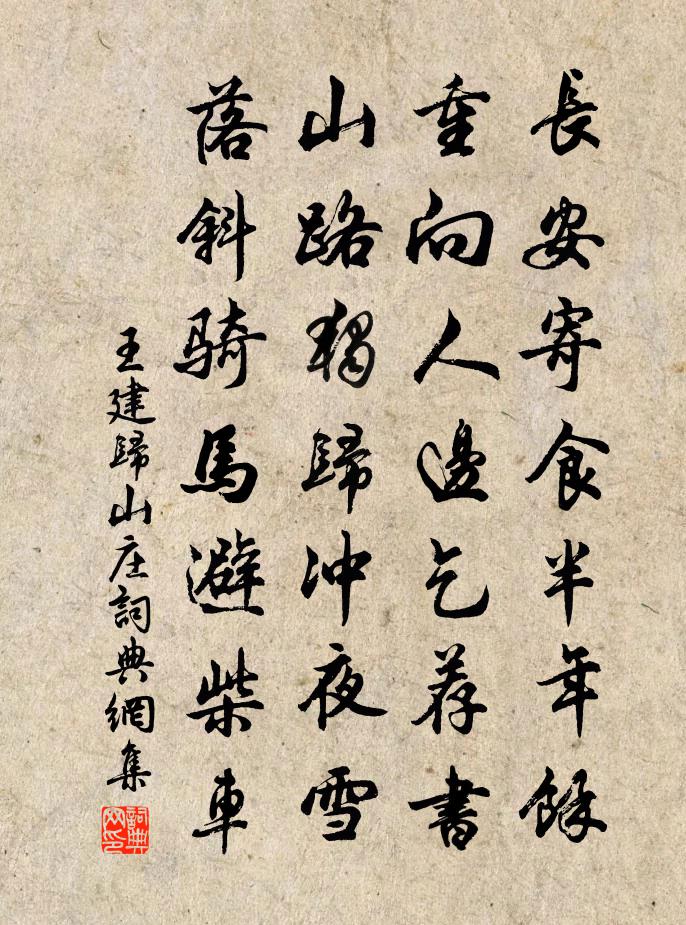 長安寄食半年餘
重向人邊乞荐書
山路獨歸冲夜雪
落斜騎馬避柴車
王建歸山庄詞典網集
詞典網印